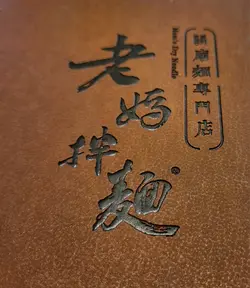 老媽拌麵®
Mom's Dry Noodle
關廟麵專門店